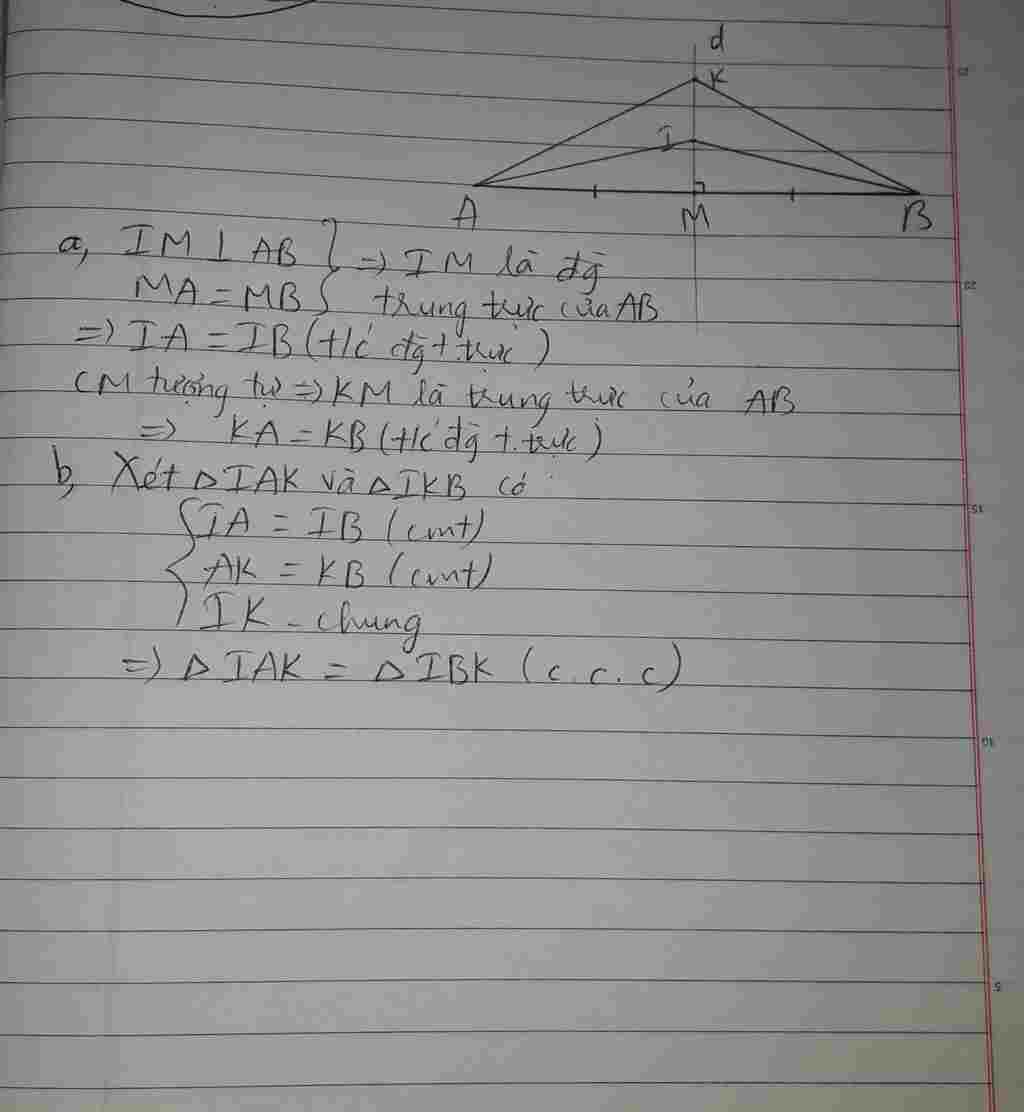 d
K
I
A
M
B
a, IM ⊥ AB } => IM là đg
MA = MB } trung trực của AB
=> IA = IB (t/c đg t trực)
CM tượng tự => KM là trung trực của AB
=> KA = KB (t/c đg t. trực)
b, Xét △IAK và △IKB có
{ IA = IB (cmt)
AK = KB (cmt)
IK - chung
=> △IAK = △IBK (c.c.c)
20
15
10
5